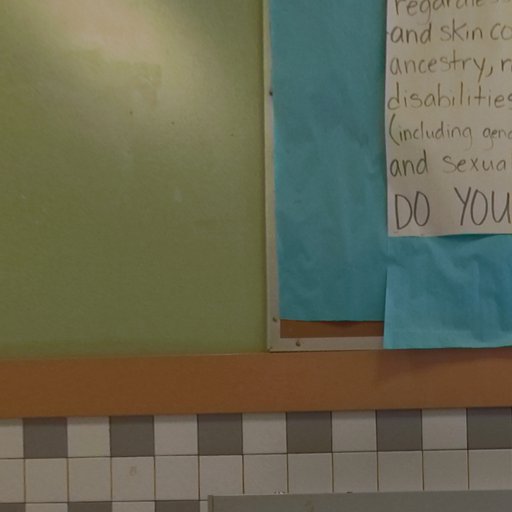 regardless
and skin co
ancestry, n
disabilities
(including gend
and sexual
DO YOU